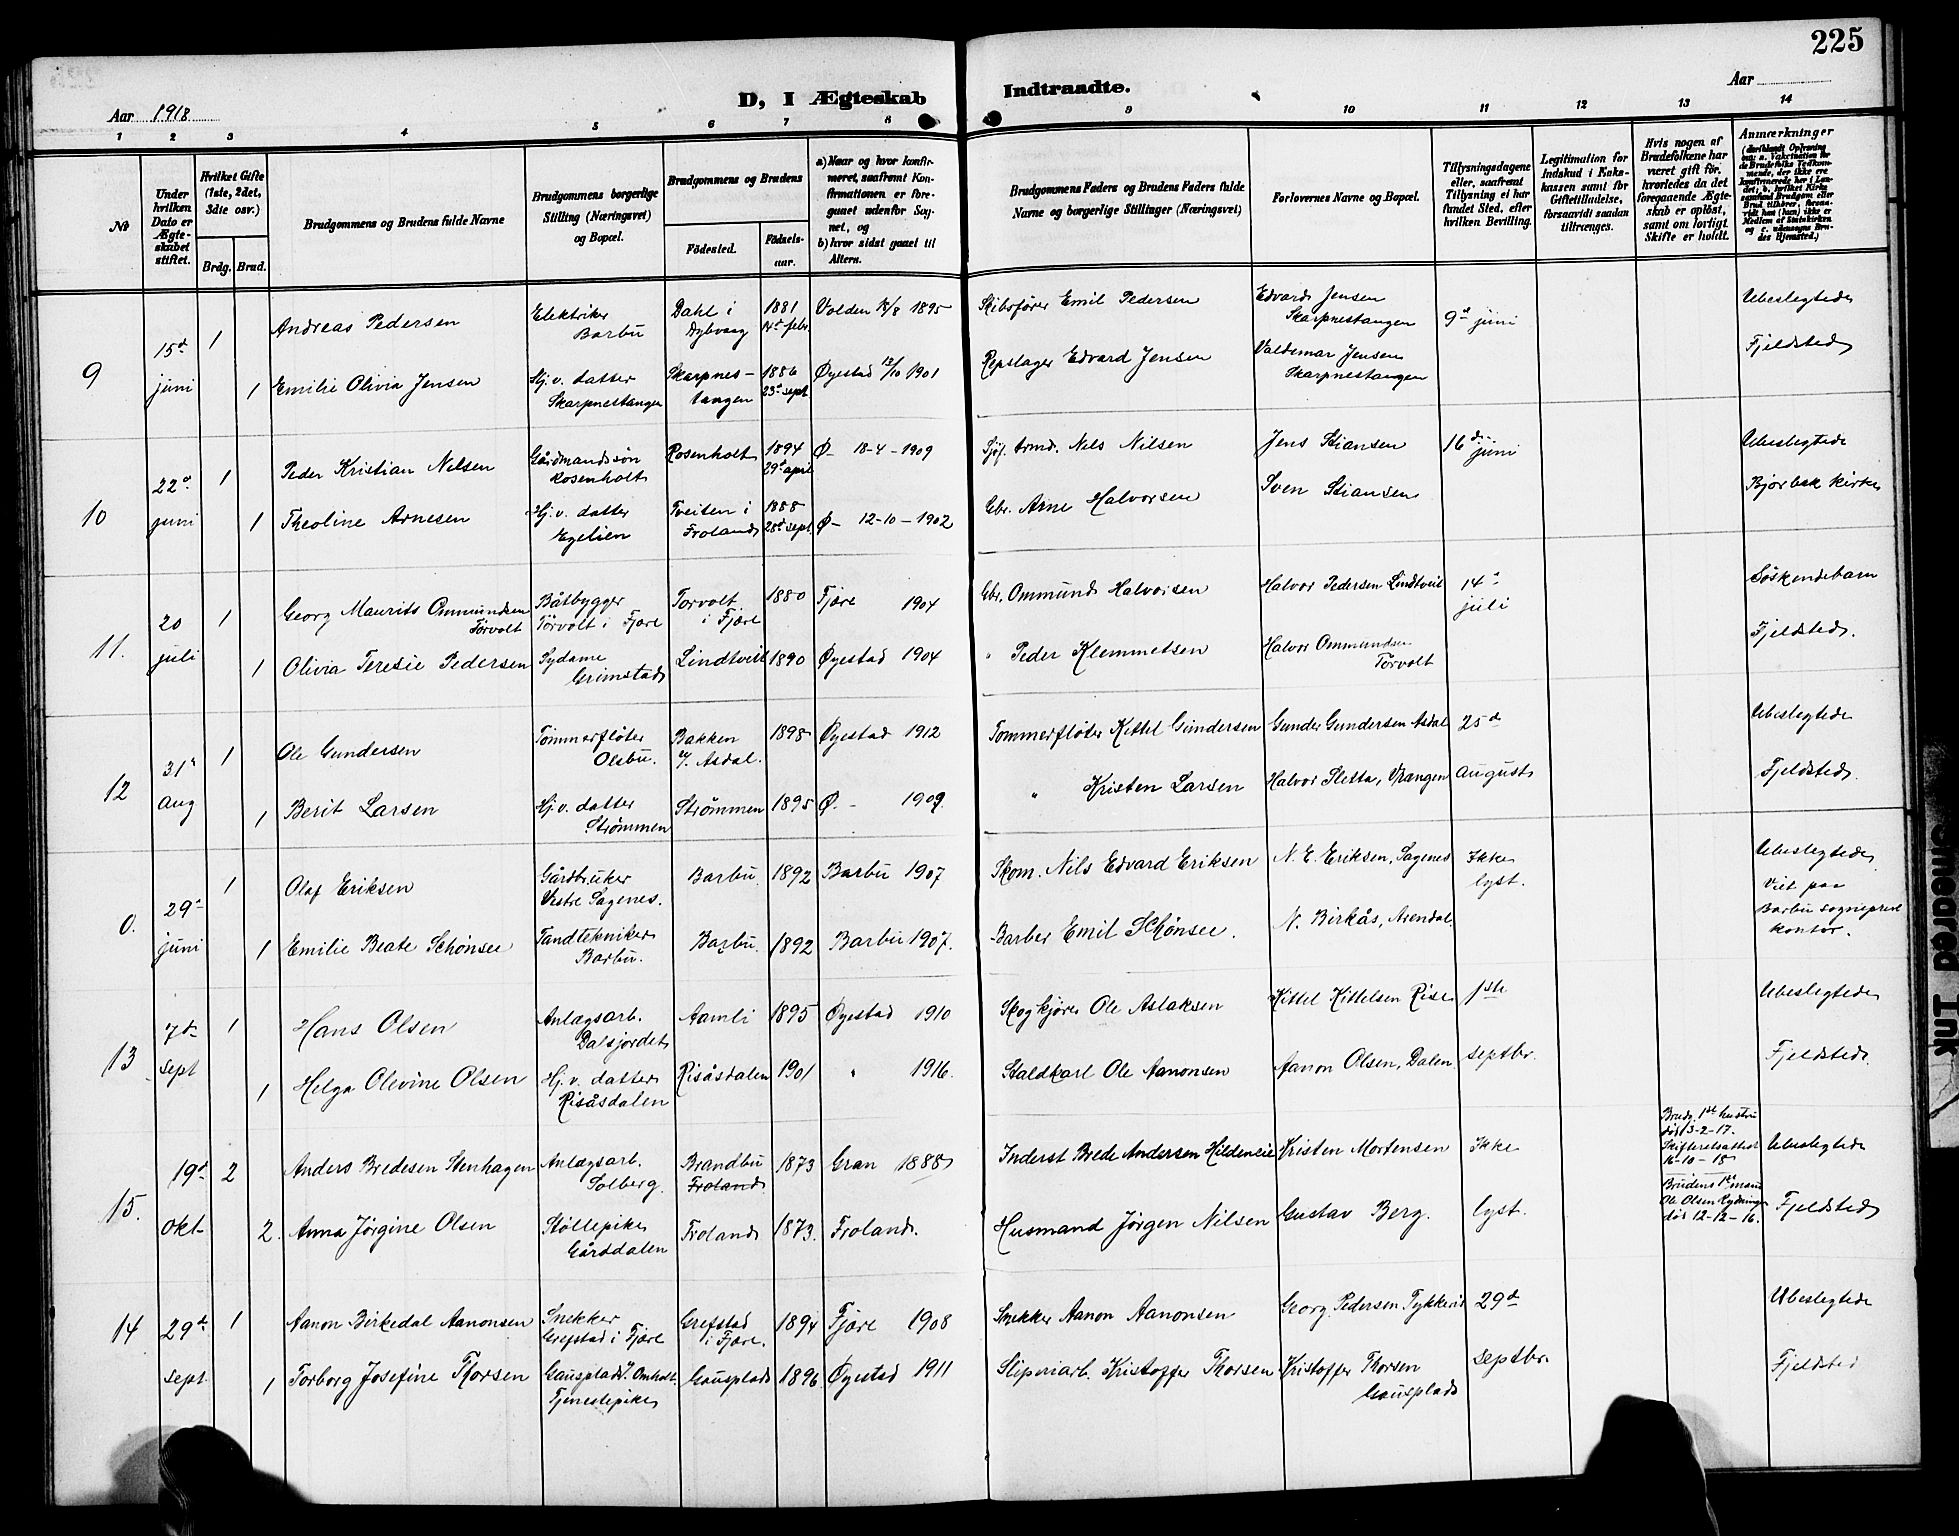 225
Aar 1918
D, I Ægteskab Indtraadte.
Aar
1 2 3 4 5 6 7 8 9 10 11 12 13 14
No
Under hvilken Dato er Ægteskabet stiftet.
Hvilket Gifte (1ste, 2det, 3die osv.)
Brdg. Brud.
Brudgommens og Brudens fulde Navne
Brudgommens borgerlige Stilling (Næringsvei) og Bopæl.
Brudgommens og Brudens
Födested. Födselsaar.
a) Naar og hvor konfirmeret, saafremt Konfirmationen er foregaaet udenfor Sognet, og
b) hvor sidst gaaet til Alters.
Brudgommens Faders og Brudens Faders fulde Navne og borgerlige Stillinger (Næringsvei)
Forlovernes Navne og Bopæl.
Tillysningsdagene eller, saafremt Tillysning ei har fundet Sted, efter hvilken Bevilling.
Legitimation for Indskud i Enkekassen samt for Giftetilladelse, forsaavidt saadan tiltrænges.
Hvis nogen af Brudefolkene har været gift för, hvorledes da det foregaaende Ægteskab er oplöst, samt om lovligt Skifte er holdt.
Anmærkninger
9 15d juni 1 Andreas Pedersen Elektriker Barbu Dahl i Dybvaag 1881 14d febr. Volden 18/8 1895 Skibsfører Emil Pedersen Edvard Jensen Skarpnestangen 9d juni Ubeslegtede
1 Emilie Olivia Jensen Hj.v. datter Skarpnestangen Skarpnestangen 1886 23d sept Øyestad 13/10 1901 Repslager Edvard Jensen Valdemar Jensen Skarpnestangen Fjeldsted
10 22d juni 1 Peder Kristian Nilsen Gårdmandssøn Rosenholt Rosenholt 1894 29d april Ø- 18-4-1909 Nils Nilsen Jens Stiansen 16d juni Ubeslegtede
1 Theoline Arnesen Hj.v. datter Egelien Tveiten i Froland 1888 28d sept Ø- 12-10-1902 Gbr. Arne Halvorsen Sven Stiansen Bjorbek kirke
11. 20 juli 1 Georg Maurits Ommundsen Törvolt Båtbygger Törvolt i Fjære Torvolt i Fjære 1880 Fjære 1904 Gbr. Ommund Halvorsen Halvor Pedersen Lindtveit 14d juli Söskendebarn
1 Olivia Teresie Pedersen Sydame Grimstad Lindtveit 1890 Øyestad 1904 " Peder Klemmetsen Halvor Ommundsen Törvolt Fjeldsted.
12 31d aug 1 Ole Gundersen Tømmerfløter Olsbu. Bakken u/. Asdal. 1898 Øyestad 1912 Tommerfløter Kittel Gundersen Gunder Gundersen Asdal 25d Ubeslegtede
1 Berit Larsen Hj.v. datter Strømmen Strømmen 1895 Ø. - 1909 " Kristen Larsen Halvor Sletta, Vrangen August Fjeldsted.
0. 29d juni 1 Olaf Eriksen Gårdbruker Vestre Sagenes. Barbu 1892 Barbu 1907 Skom. Nils Edvard Eriksen N. E. Eriksen, Sagenes Ikke lyst. Ubeslegtede Viet paa Barbu sogneprest kontor.
1 Emilie Beate Schønsee Tandtekniker Barbu. Barbu. 1892 Barbu 1907. Barber Emil Schønsee. N. Birkås, Arendal
13 7d sept 1 Hans Olsen Anlægsarb. Dalsjordet Aamli 1895 Øyestad 1910 Skogkjører Ole Aslaksen Kittel Kittelsen Rise 1ste Ubeslegtede
1 Helga Olevine Olsen Hj.v. datter Risåsdalen Risåsdalen 1901 " 1916. Staldkarl Ole Aanonsen Aanon Olsen, Dalen septbr. Fjeldsted.
15. 19d okt 2 Anders Bredesen Stenhagen Anlægsarb. Solberg. Brandbu Froland 1873 Gran 1888 Inderst Brede Andersen Hildeneie Kristen Mortensen Ikke Brudg. 1ste hustru död 13-2-17. Skifteretsattest 16-10-18 Ubeslegtede
2. Anna Jørgine Olsen Støllepike Gårddalen Froland 1873. Froland. Husmand Jørgen Nilsen Gustav Berg. lyst. Brudens 1ste mann Ole Olsen död 12-12-16. Fjeldsted
14 29d sept 1 Aanon Birkedal Aanonsen Snekker Grefstad i Fjære Grefstad i Fjære. 1894 Fjære 1908 Snekker Aanon Aanonsen Georg Pedersen 29d Ubeslegtede
1 Torborg Josefine Thorsen Gausplads Omholt Tjenestepike Gausplads 1896 Øyestad 1911 Sliperiarb. Kristoffer Thorsen Kristoffer Thorsen Gausplads septbr. Fjeldsted
Ink